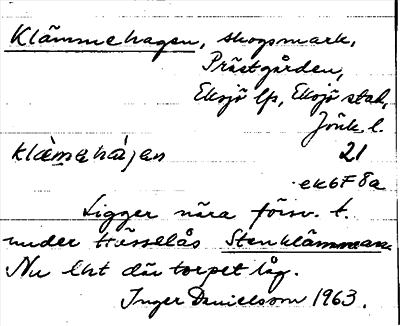 Klämmehagen, skogsmark,
Prästgården,
Eksjö lfs, Eksjö stad,
Jönk. l.
klàmehájen 21
ek6F8a
Ligger nära försv. t.
under Prässelås Stenklämman.
Nu lht där torpet låg.
Inger Danielsson 1963.